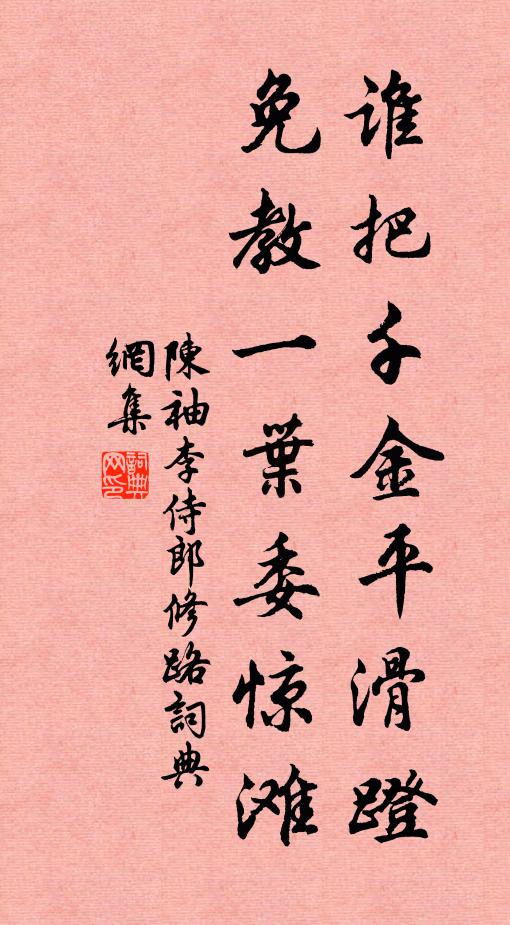 谁把千金平滑蹬
免教一葉委惊滩
陳袖李侍郎修路詞典
網集
詞典網印